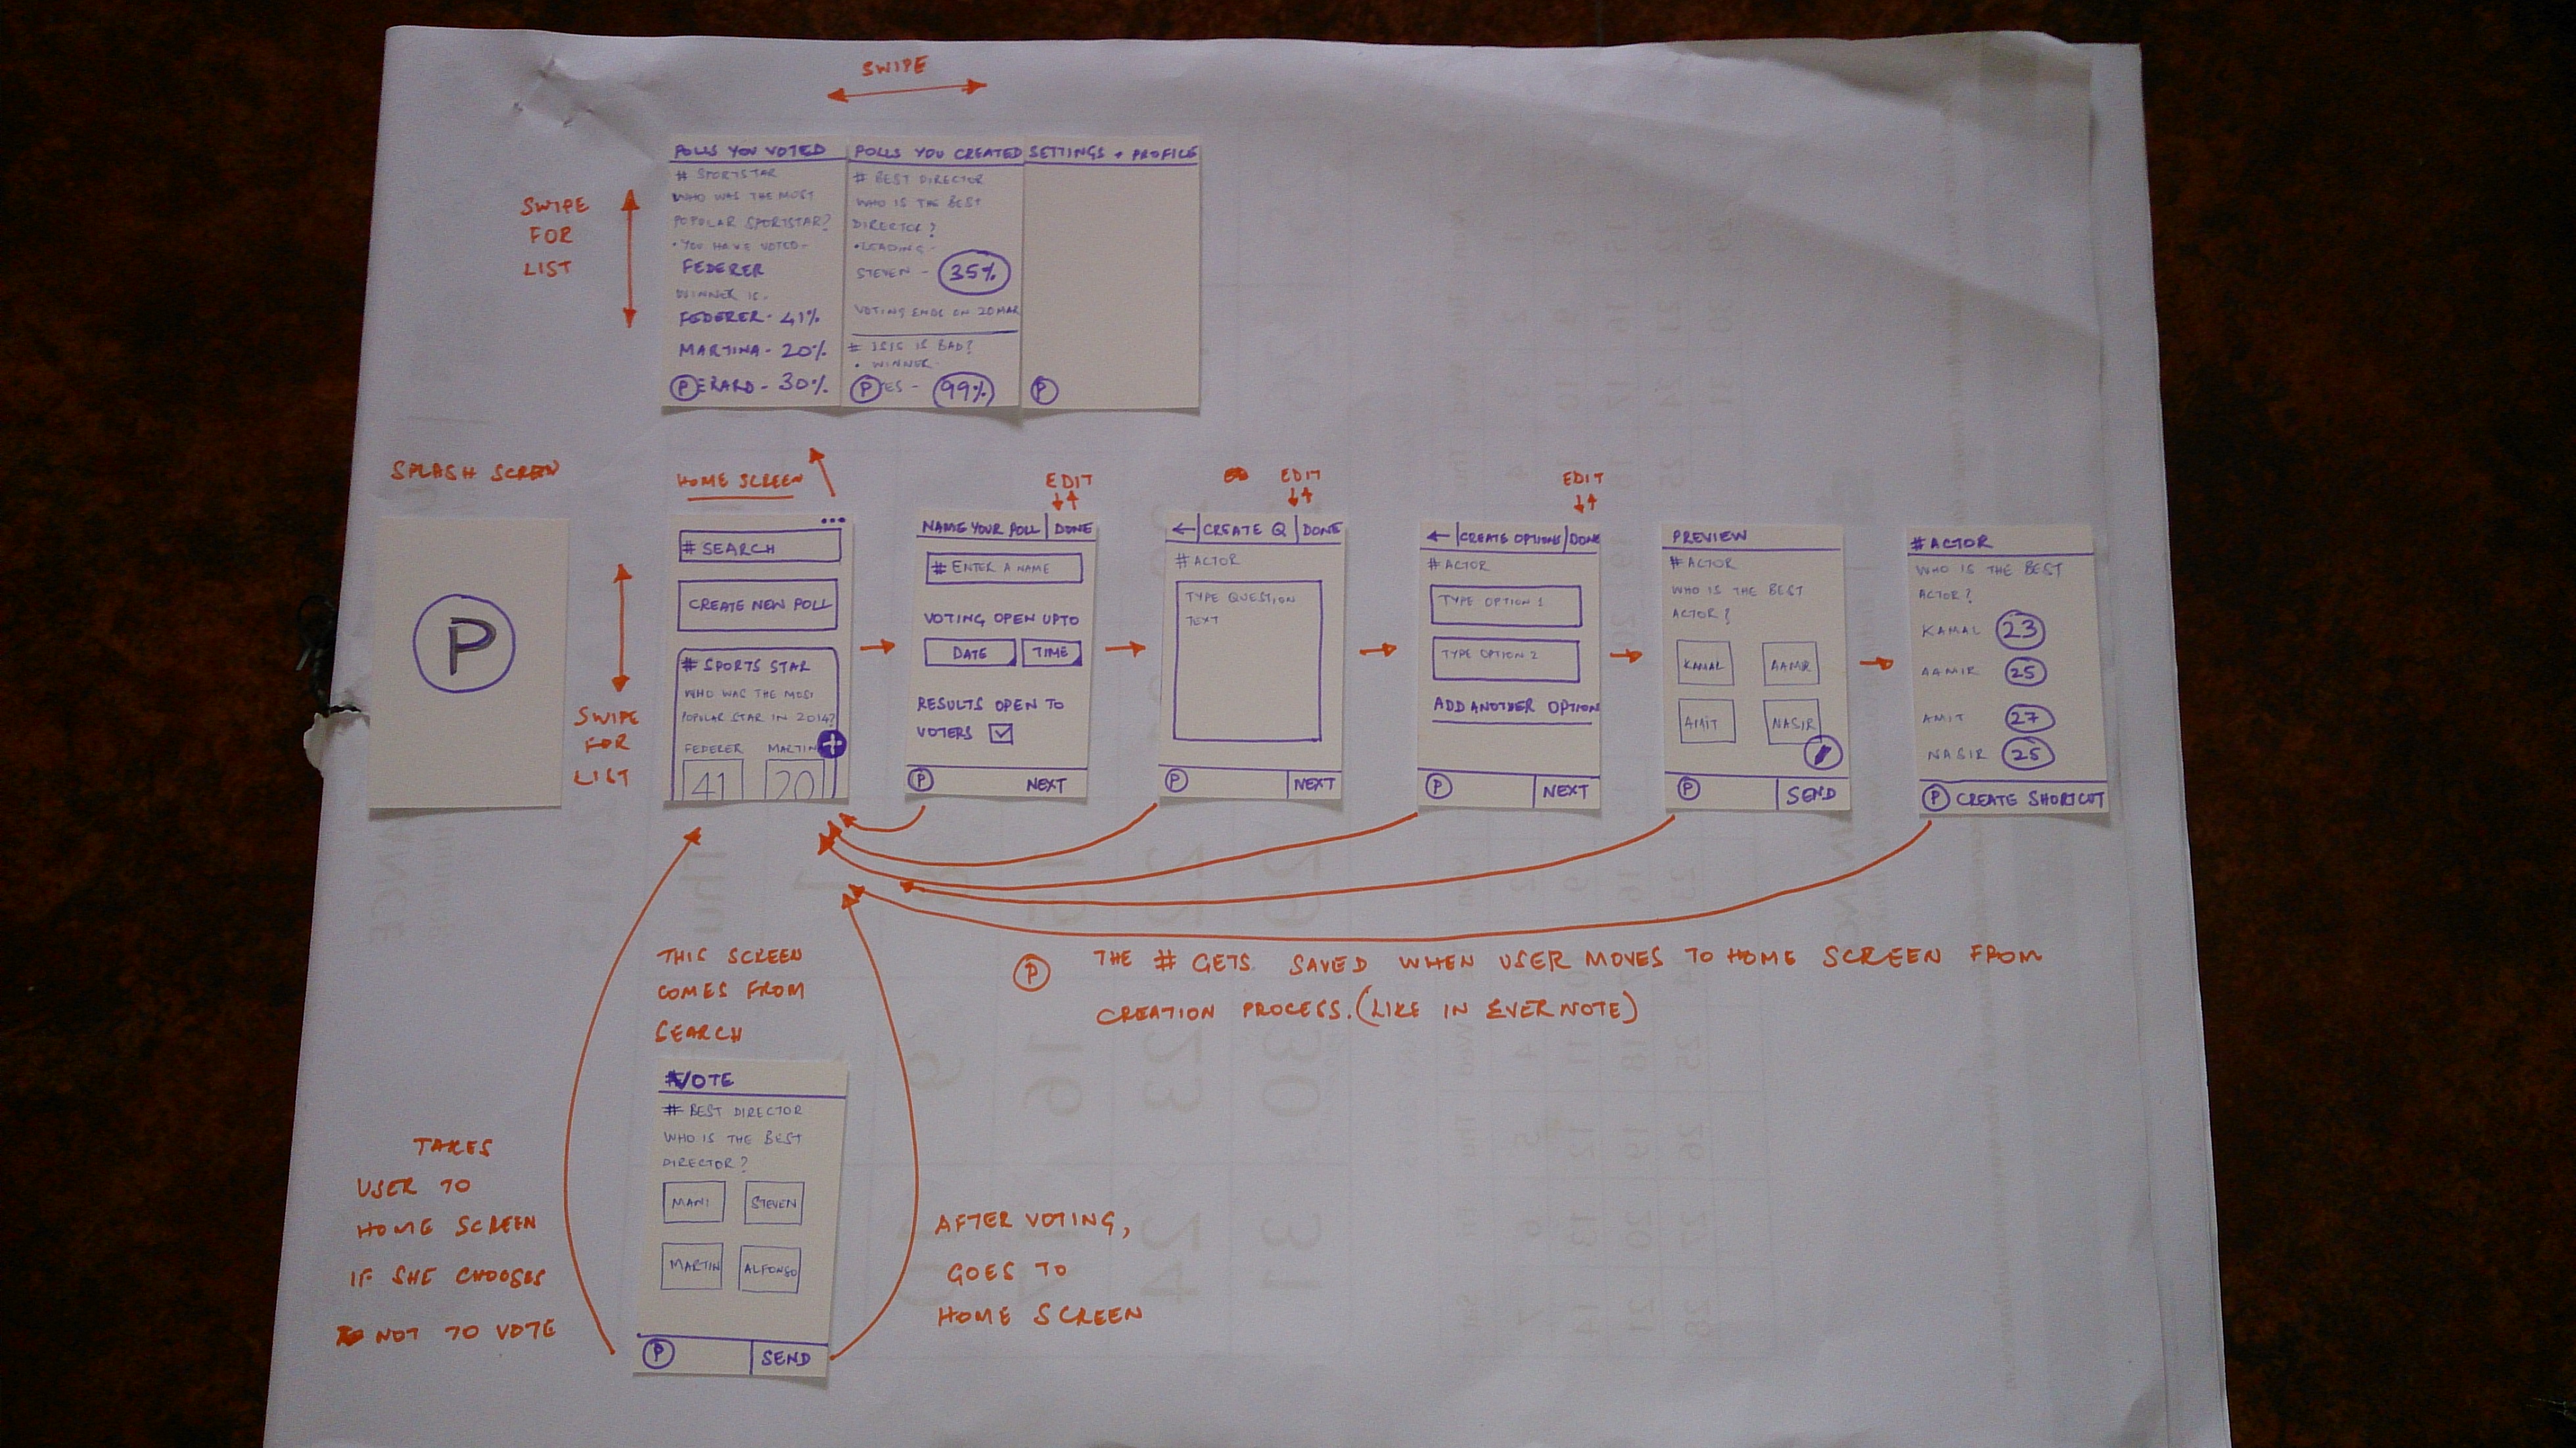 SWIPE
SWIPE
FOR
LIST
POLLS YOU VOTED
# SPORTSTAR
WHO WAS THE MOST
POPULAR SPORTSTAR?
• YOU HAVE VOTED-
FEDERER
WINNER IS.
FEDERER - 41%
MARTINA - 20%
P ERARD - 30%
POLLS YOU CREATED
# BEST DIRECTOR
WHO IS THE BEST
DIRECTOR?
• LEADING-
STEVEN - 35%
VOTING ENDS ON 20 MAR
# ISIS IS BAD?
• WINNER-
P YES - 99%
SETTINGS + PROFILE
P
SPLASH SCREEN
P
HOME SCREEN
SWIPE
FOR
LIST
...
# SEARCH
CREATE NEW POLL
# SPORTS STAR
WHO WAS THE MOST
POPULAR STAR IN 2014?
FEDERER MARTIN
+
41 20
EDIT
NAME YOUR POLL DONE
# ENTER A NAME
VOTING OPEN UPTO
DATE TIME
RESULTS OPEN TO
VOTERS
P NEXT
EDIT
← CREATE Q DONE
# ACTOR
TYPE QUESTION
TEXT
P NEXT
EDIT
← CREATE OPTIONS DONE
# ACTOR
TYPE OPTION 1
TYPE OPTION 2
ADD ANOTHER OPTION
P NEXT
PREVIEW
# ACTOR
WHO IS THE BEST
ACTOR?
KAMAL AAMIR
AMIT NASIR
P SEND
# ACTOR
WHO IS THE BEST
ACTOR?
KAMAL 23
AAMIR 25
AMIT 27
NASIR 25
P CREATE SHORTCUT
P THE # GETS SAVED WHEN USER MOVES TO HOME SCREEN FROM
CREATION PROCESS. (LIKE IN EVERNOTE)
THIS SCREEN
COMES FROM
SEARCH
#VOTE
# BEST DIRECTOR
WHO IS THE BEST
DIRECTOR?
MANI STEVEN
MARTIN ALFONSO
P SEND
TAKES
USER TO
HOME SCREEN
IF SHE CHOOSES
NOT TO VOTE
AFTER VOTING,
GOES TO
HOME SCREEN